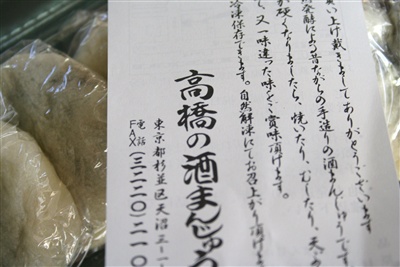 買い上げ戴きましてありがとうございます
発酵による昔ながらの手造りの酒まんじゅうです
が硬くなりましたら、焼いたり、むしたり、天ぷ
、又一味違った味をご賞味頂けます。
冷凍保存できます。自然解凍にてお召上がり頂けま
高橋の酒まんじゅう
東京都杉並区天沼三ー
電話
FAX
(三二二〇)二一〇